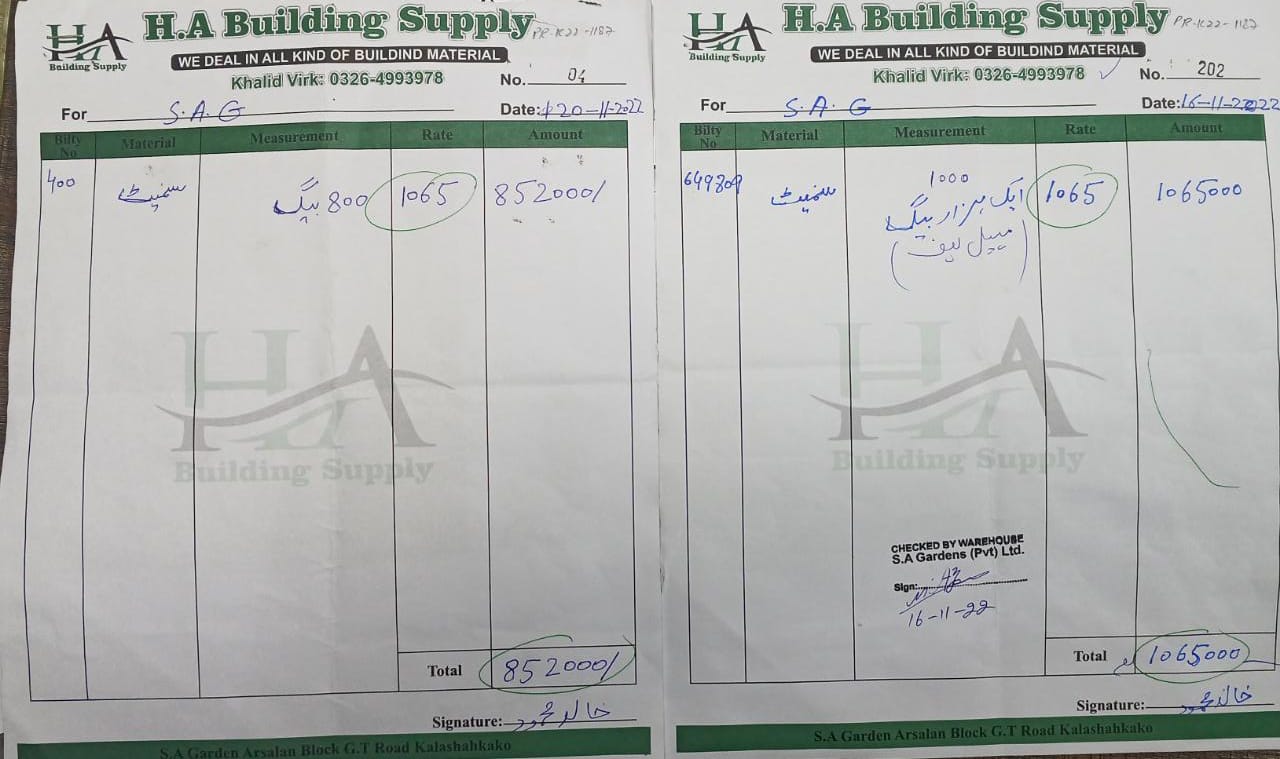 HA
Building Supply
H.A Building Supply
PR-1C22-1187
WE DEAL IN ALL KIND OF BUILDIND MATERIAL
Khalid Virk: 0326-4993978
No. 04
For S.A.G
Date: 20-11-2022
Bilty No Material Measurement Rate Amount
400 سمنٹ 800 بیگ 1065 852000/
HA
Building Supply
Total 852000/
Signature: خالد محمود
S.A Garden Arsalan Block G.T Road Kalashahkako
HA
Building Supply
H.A Building Supply
PR-1C22-1187
WE DEAL IN ALL KIND OF BUILDIND MATERIAL
Khalid Virk: 0326-4993978
No. 202
For S.A.G
Date: 16-11-2022
Bilty No Material Measurement Rate Amount
1000
649809 سمنٹ ایک ہزار بیگ 1065 1065000
(میپل لیف)
HA
Building Supply
CHECKED BY WAREHOUSE
S.A Gardens (Pvt) Ltd.
Sign:
16-11-22
Total 1065000
Signature: خالد محمود
S.A Garden Arsalan Block G.T Road Kalashahkako